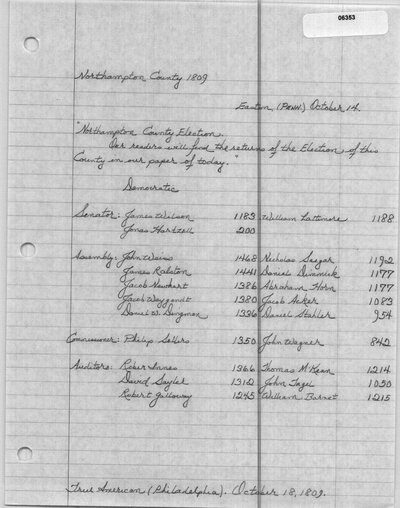 06353
Northampton County 1809
Easton (PENN.) October 14.
"Northampton County Election.
Our readers will find the returns of the Election, of this
County in our paper of today."
Democratic
Senator: James Wilson 1183 William Lattimore 1188
Jonas Hartzell 200
Assembly: John Weiss 1468 Nicholas Saegar 1192
James Ralston 1441 Daniel Dimmick 1177
Jacob Newhart 1386 Abraham Horn 1177
Jacob Weygandt 1380 Jacob Acker 1083
Daniel W. Dingman 1336 Daniel Stahler 954
Commissioner: Philip Sellers 1350 John Wagner 842
Auditors: Rober Innes 1366 Thomas M'Kean 1214
David Saylor 1312 John 1050
Robert Galloway 1245 William Barnet 1215
True American (Philadelphia). October 18, 1809.